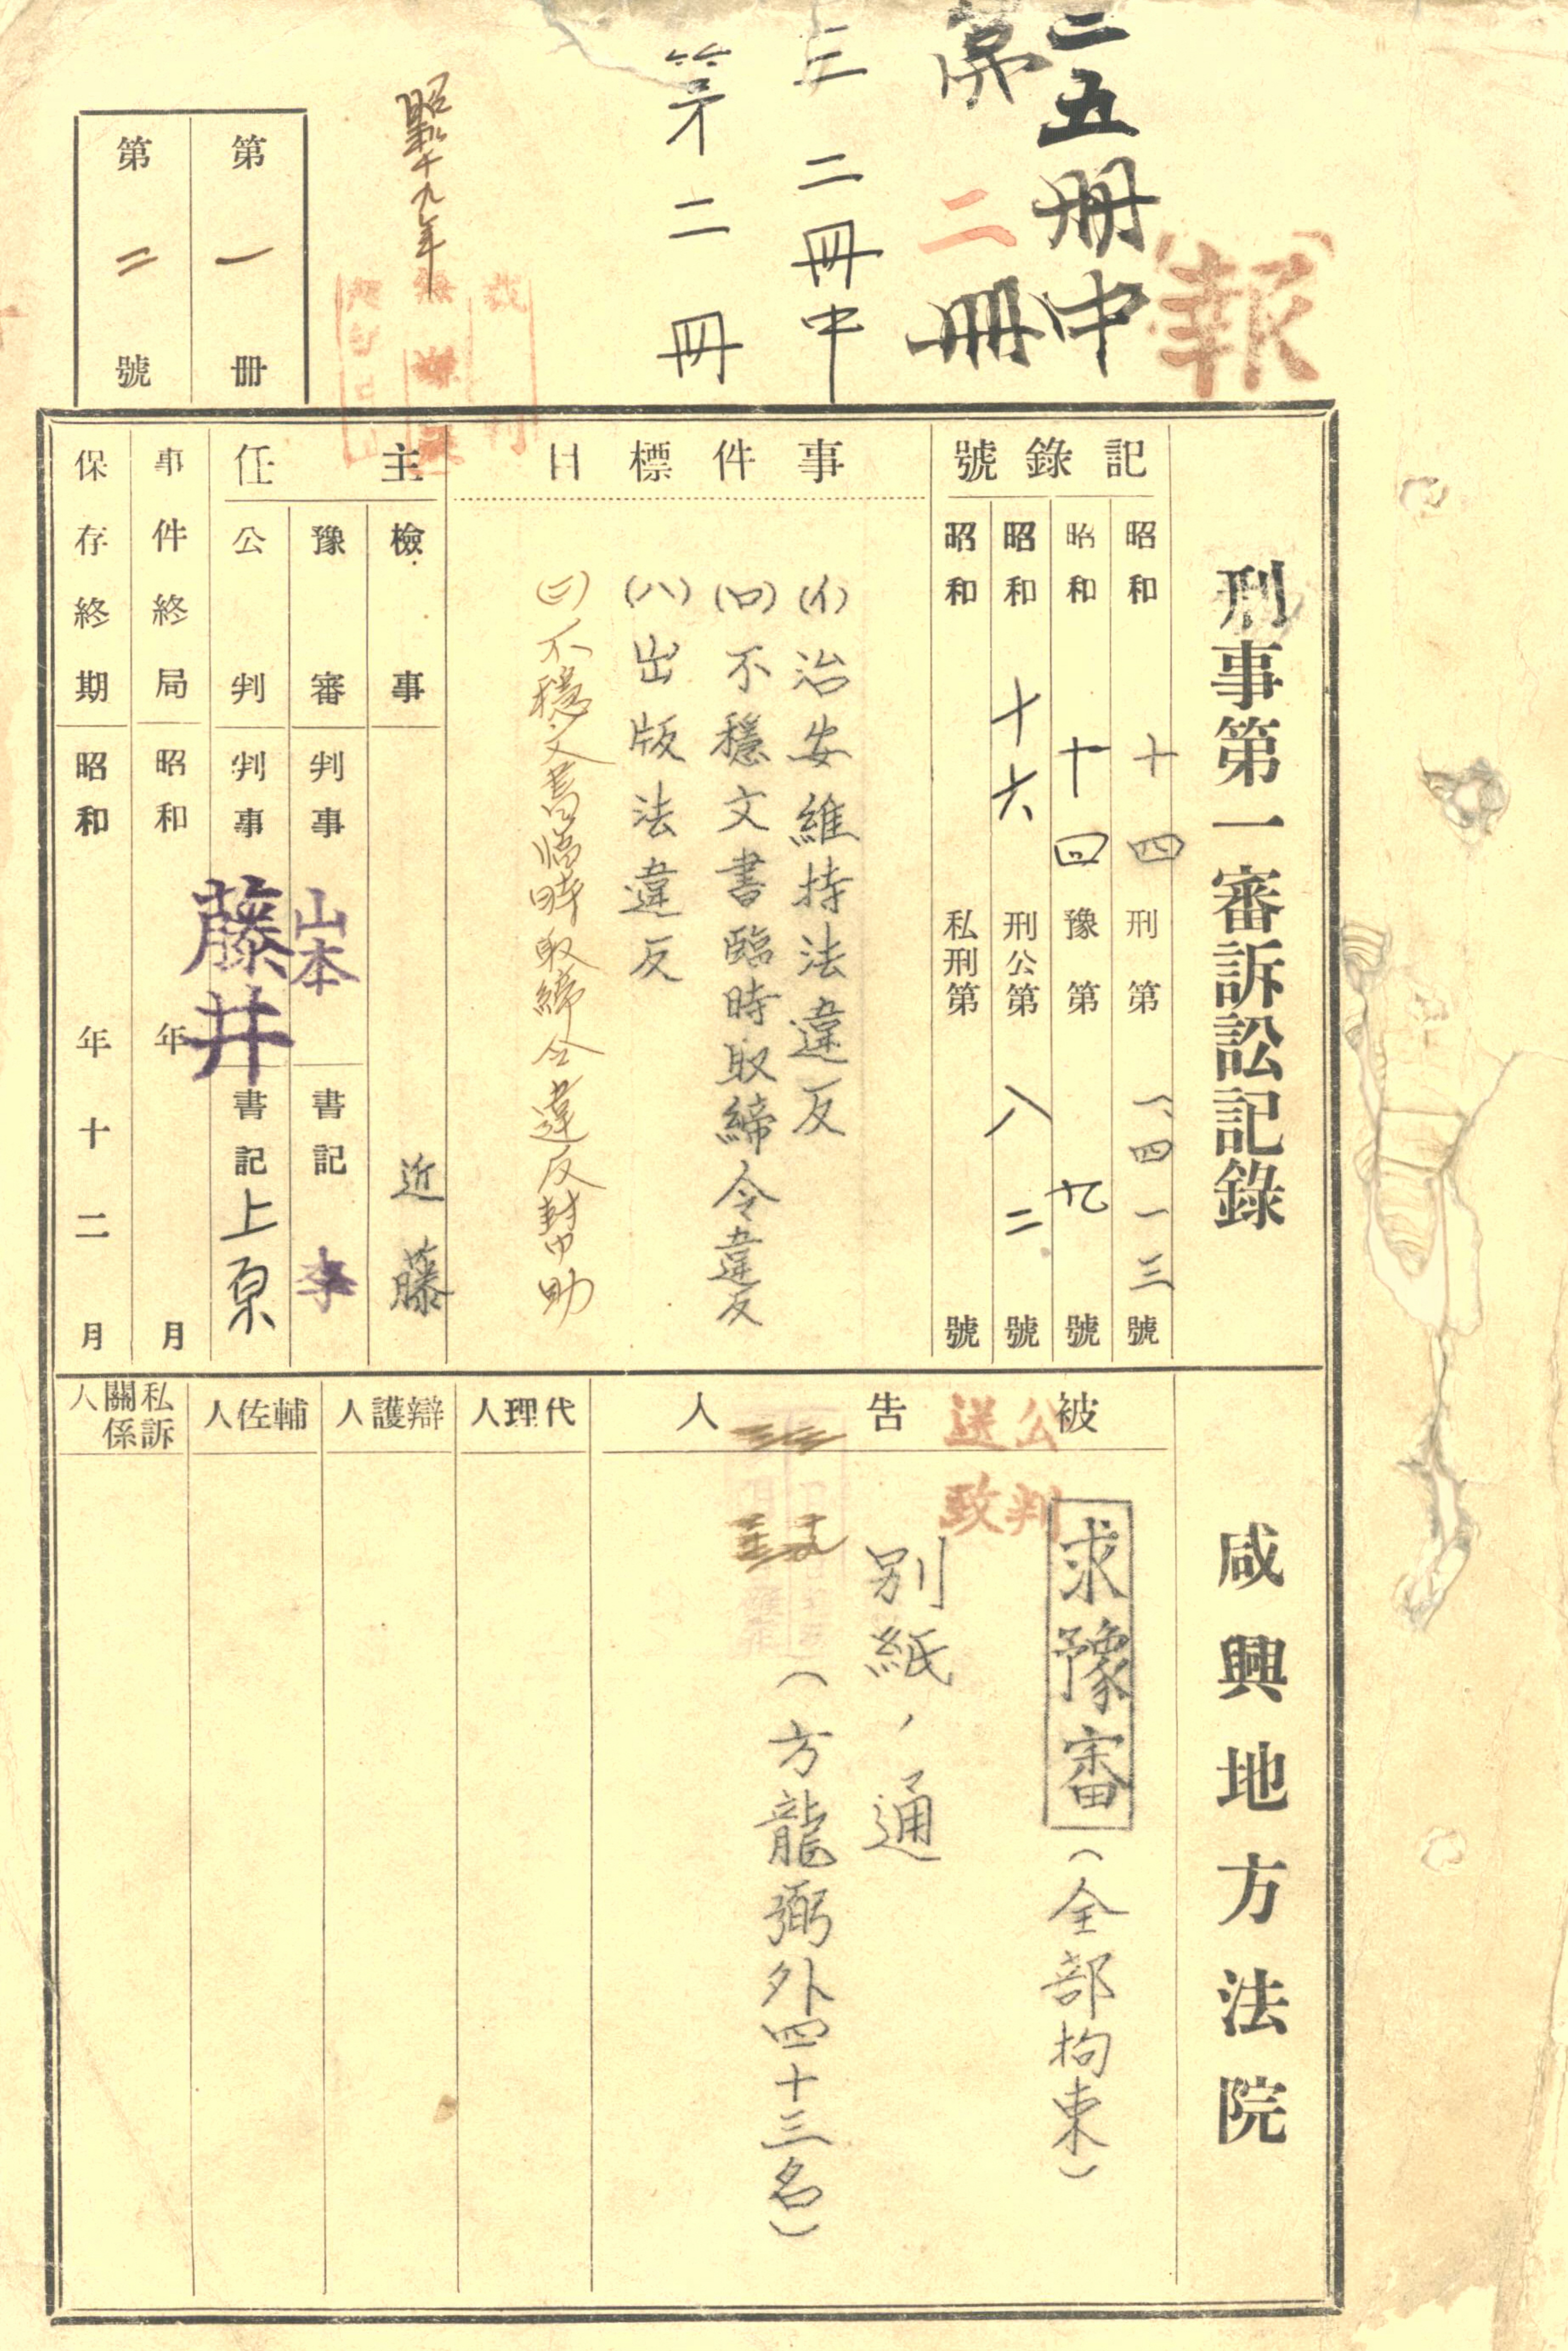 報
二五册中
第二册
三二冊中
第二冊
昭和十九年
第一册
第二號
刑事第一審訴訟記錄
咸興地方法院
記錄號
昭和十四刑第一、四一三號
昭和十四豫第九號
昭和十六刑公第八二號
昭和私刑第號
事件標目
(イ)治安維持法違反
(ロ)不穩文書臨時取締令違反
(ハ)出版法違反
(ニ)不穩文書臨時取締令違反幇助
主任
檢事近藤
豫審判事山本書記李
公判判事藤井書記上原
事件終局昭和年月
保存終期昭和年十二月
被告人
公判
送致
求豫審(全部拘束)
別紙ノ通
(方龍弼外四十三名)
代理人
辯護人
輔佐人
私訴關係人